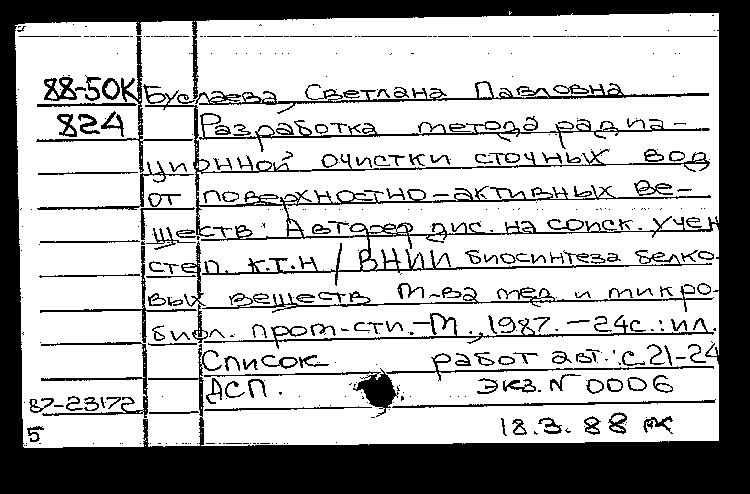 88-50К Буслаева, Светлана Павловна
824 Разработка метода радиа-
ционной очистки сточных вод
от поверхностно-активных ве-
ществ: Автореф дис. на соиск. учен
степ. к.т.н / ВНИИ биосинтеза белко-
вых веществ М-ва мед. и микро-
биол. пром-сти. -М., 1987. -24с.: ил.
Список работ авт.: с. 21-24
ДСП. экз. N 0006
87-23172
5 18.3.88